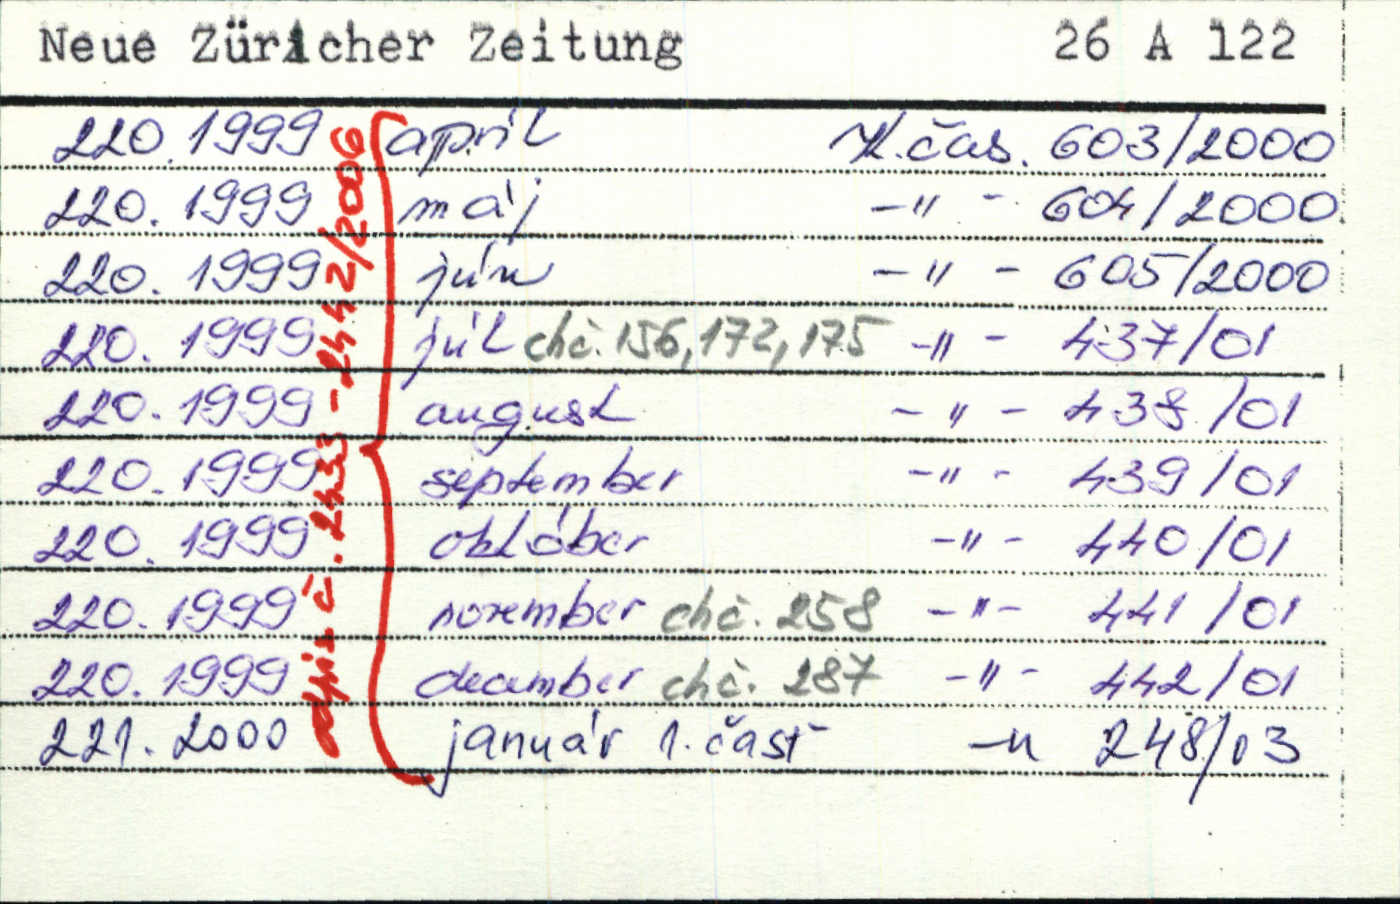 Neue Züricher Zeitung 26 A 122
220. 1999 apríl Zl. čas. 603/2000
220. 1999 máj -"- 604/2000
220. 1999 jún -"- 605/2000
220. 1999 júl chč. 156, 172, 175 -"- 437/01
220. 1999 august -"- 438/01
220. 1999 september -"- 439/01
220. 1999 október -"- 440/01
220. 1999 november chč. 258 -"- 441/01
220. 1999 december chč. 287 -"- 442/01
221. 2000 január 1. časť -"- 248/03
odpis č. 2433-2442/2006